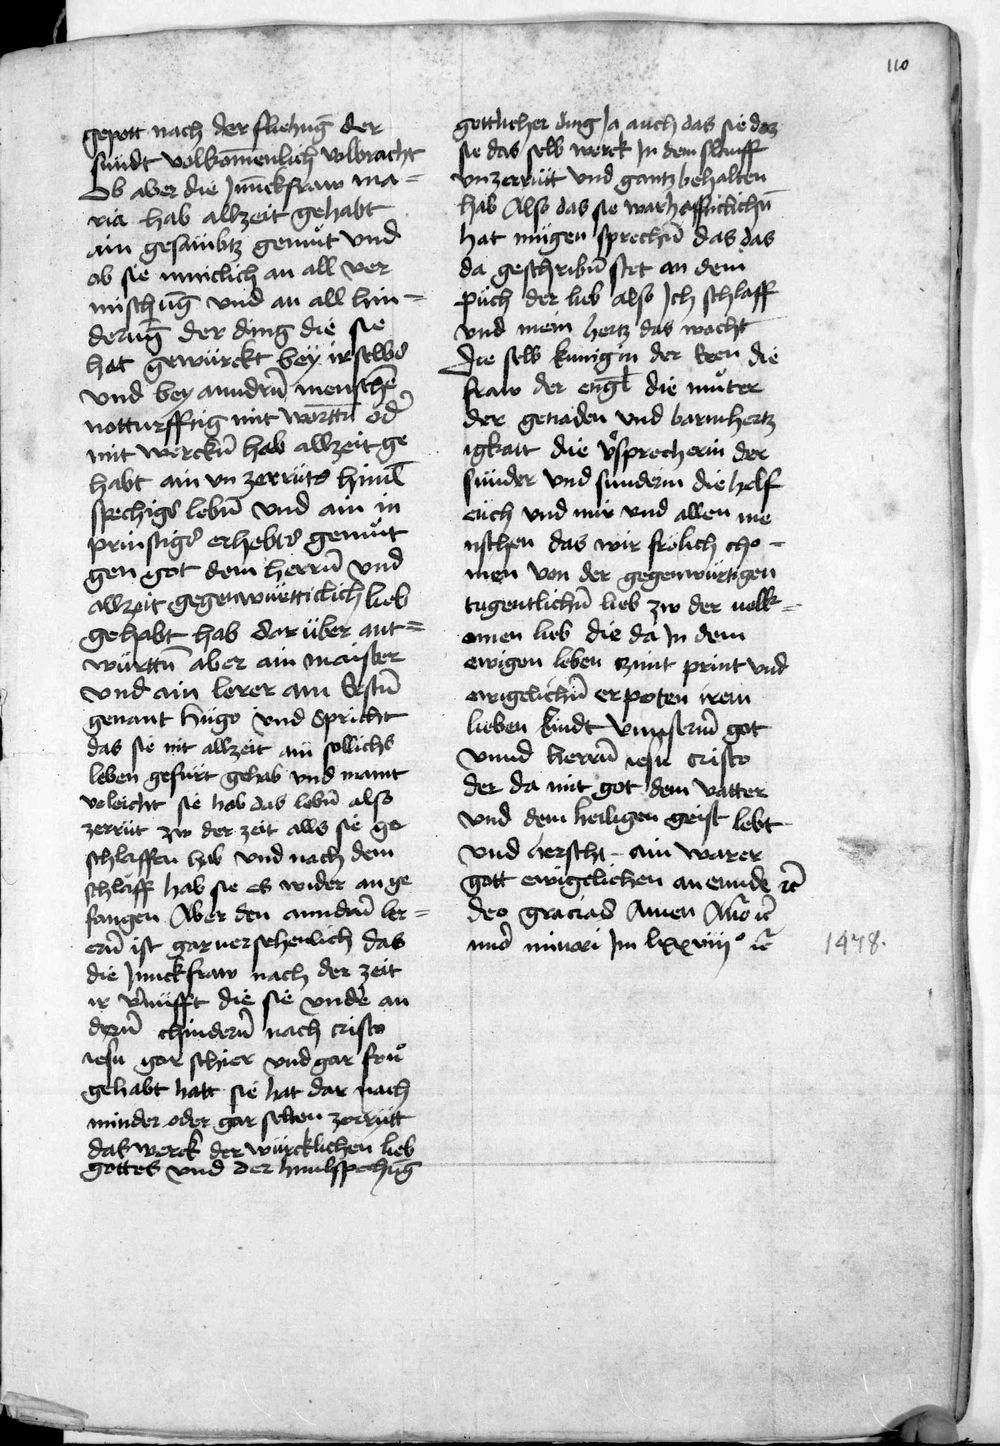 110
gepott nach der fliehūg der
sündt volkōmenlich volbracht
Ob aber die Junckfraw ma=
ria hab allzeit gehabt
ain gesäubtz gemüt vnd
ob sie nmclich an all ver
mischūg vnd an all hin=
derūg der ding die sie
hat gewürckt bey ir selbs
vnd bey anndrn̄ menschē
notturfftig mit wortn̄ od̾
mit werckn̄ hab allzeit ge
habt ain vnzerrüts himl
spechigs lebn̄ vnd ain in
prinstigs erhebts gemüt
gen got dem herrn̄ vnd
allzeit gegenwürticklich lieb
gehabt hab dar über ant=
württn̄ aber ain maister
vnd ain lerer am Erstn̄
genant hugo vnd Spricht
das sie nit allzeit ain sollichs
leben gefürt gehab vnd maint
voleicht sie hab das lebn̄ also
zerrüt zw der zeit alls sie ge
schlaffen hab vnd nach dem
schlaff hab sie es wider ange
fangen Aber den anndrn̄ ler=
ern̄ ist gar versehenlich das
die Junckfraw nach der zeit
ir v̾nüfft die sie vnder an
dern̄ chindern̄ nach cristo
iesu gar schier vnd gar frü
gehabt hatt sie hat dar nach
minder oder gar selten zerrütt
das werck der würcklichen lieb
gottes vnd der himlspechūg
gottlicher ding Ja auch das sie daz
sie das selb werck In dem slauff
vnzerrütt vnd gantz behalten
hab Also das sie warhafftiklichn̄
hat mügen sprechn̄ das das
da geschribn̄ stet an dem
püch der lieb also Ich schlaff
vnd mein hertz das wacht
Die selb kunigin der Eren die
fraw der engl die müter
der genaden vnd barmhertz
igkait die v̾sprecherin der
sünder vnd sunderin die helf
eüch vnd mir vnd allen me
nschen das wir frölich cho=
men von der gegenwürtigen
tugentlichn̄ lieb zw der volk=
omen lieb die da In dem
ewigen leben print vnd
ewigelichn̄ erpoten irem
lieben kindt vnnsern̄ got
vnnd herrn̄ iesu cristo
der da mit got dem vatter
vnd dem heiligen geist lebt
vnd herscht ain warer
gott ewigelichen an ennde ꝛc̄
deo gracias Amen Año ꝛc̄
minori Im lxxviij° ꝛc̄
1478.